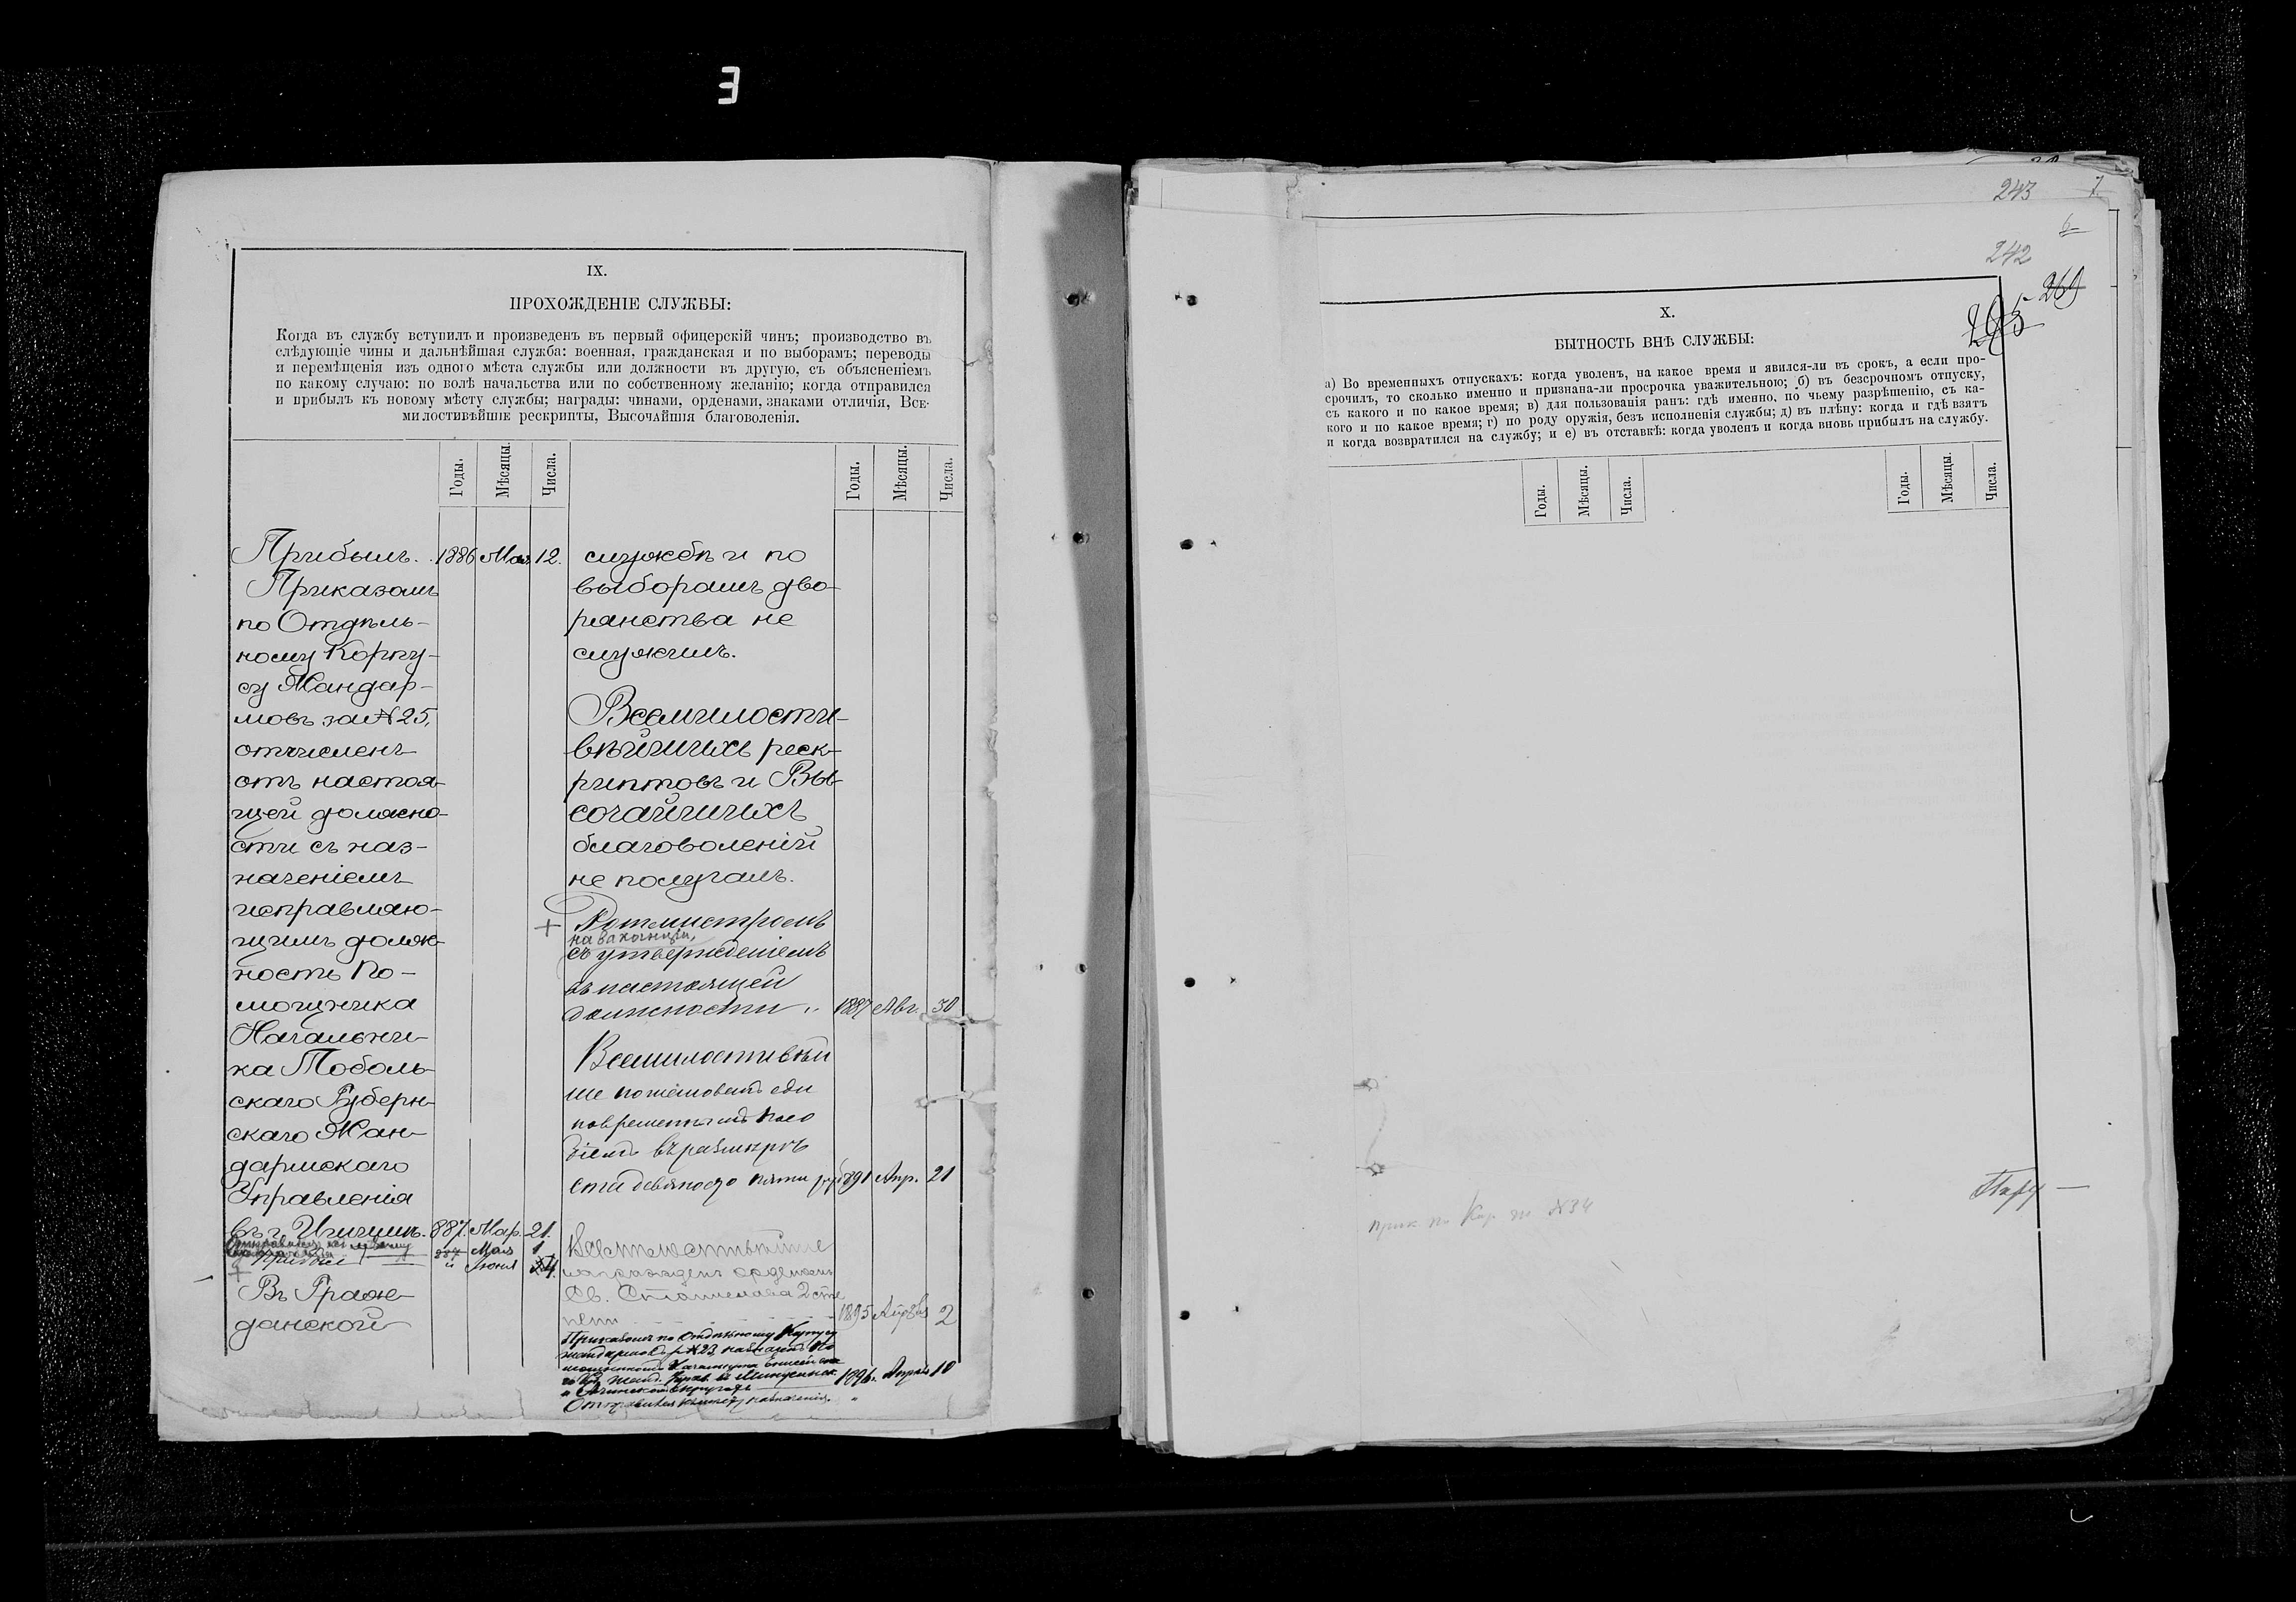 IX.
ПРОХОЖДЕНІЕ СЛУЖБЫ:
Когда въ службу вступилъ и произведенъ въ первый офицерскій чинъ; производство въ
слѣдующіе чины и дальнѣйшая служба: военная, гражданская и по выборамъ; переводы
и перемѣщенія изъ одного мѣста службы или должности въ другую, съ объясненіемъ
по какому случаю: по волѣ начальства или по собственному желанію; когда отправился
и прибылъ къ новому мѣсту службы; награды: чинами, орденами, знаками отличія, Все-
милостивѣйшіе рескрипты, Высочайшія благоволенія.
Годы. Мѣсяцы. Числа.
Прибылъ. 1886 Мая 12.
Приказомъ
по Отдѣль-
ному Корпу-
су Жандар-
мовъ за № 25,
отчисленъ
отъ настоя-
щей должно-
сти съ наз-
наченіемъ
исправляю-
щимъ долж-
ность По-
мощника
Начальни-
ка Тоболь-
скаго Губерн-
скаго Жан-
дармскаго
Управленія
въ г. Ишимъ. 887. Мар. 21.
887 Мая 1
Прибылъ " Іюня 4.
Въ Граж-
данской
Годы. Мѣсяцы. Числа.
службѣ и по
выборамъ дво-
рянства не
служилъ.
Всемилости-
вѣйшихъ реск-
риптовъ и Вы-
сочайшихъ
благоволеній
не получалъ.
+ Ротмистромъ
на ваканціи,
съ утвержденіемъ
въ настоящей
должности 1887 Авг. 30
Всемилостивѣй
ше пожалованъ еди
новременнымъ посо
біемъ въ размѣрѣ
ста девяносто пяти руб 891 Апр. 21
Всемилостивѣйше
награжденъ орденомъ
Св. Станислава 2 сте
пени 1895 Апрѣля 2
Приказомъ по Отдѣльному Корпусу
жандармовъ за № 23 назначенъ По
мощникомъ Начальника Енисейска
го Губ. жанд. Управ. въ Минусинск.
и Ачинскомъ округахъ 1896. Апрѣля 10
Отправился къ мѣсту назначенія. "
243
7
6
242
269
265
X.
БЫТНОСТЬ ВНѢ СЛУЖБЫ:
а) Во временныхъ отпускахъ: когда уволенъ, на какое время и явился-ли въ срокъ, а если про-
срочилъ, то сколько именно и признана-ли просрочка уважительною; б) въ безсрочномъ отпуску,
съ какого и по какое время; в) для пользованія ранъ: гдѣ именно, по чьему разрѣшенію, съ ка-
кого и по какое время; г) по роду оружія, безъ исполненія службы; д) въ плѣну: когда и гдѣ взятъ
и когда возвратился на службу; и е) въ отставкѣ: когда уволенъ и когда вновь прибылъ на службу.
Годы. Мѣсяцы. Числа.
Годы. Мѣсяцы. Числа.
прик по Кор. за № 34